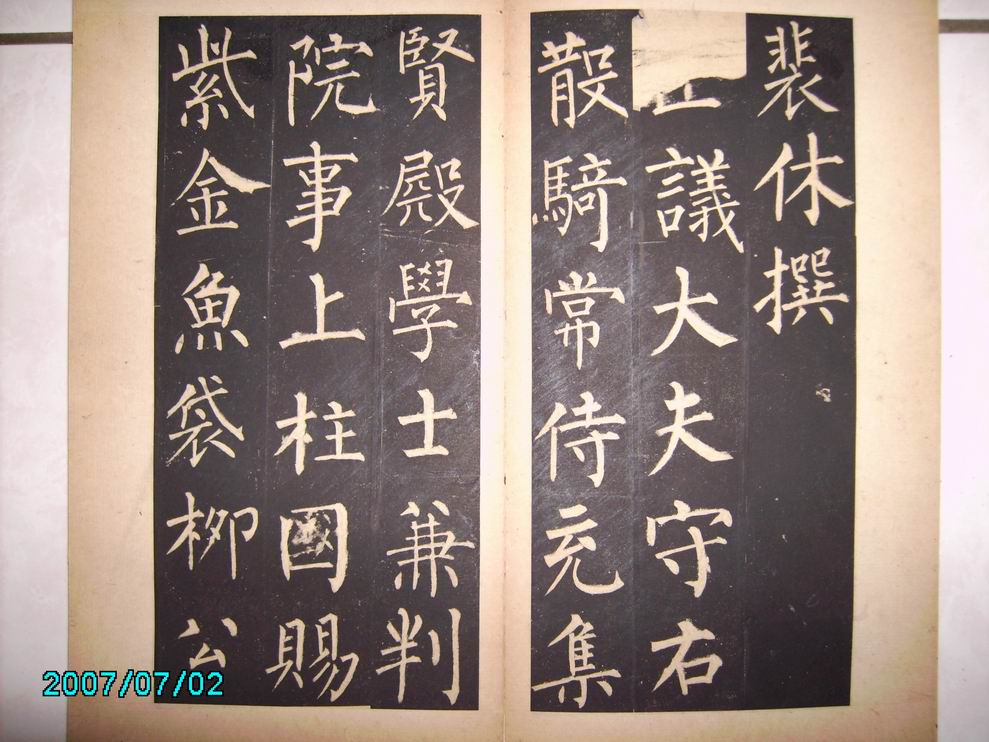 裴休撰
議大夫守右
散騎常侍充集
賢殿學士兼判
院事上柱國賜
紫金魚袋柳公
2007/07/02